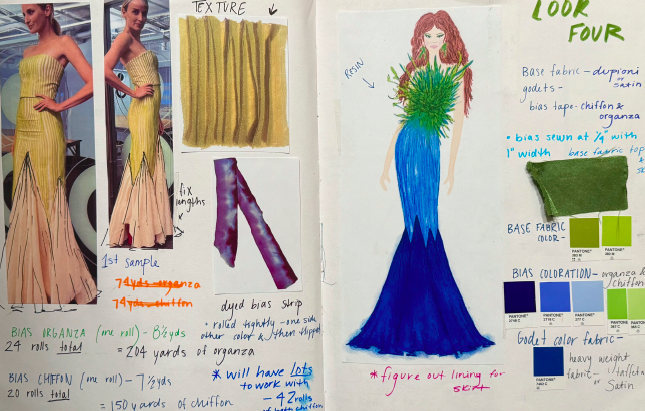 TEXTURE
fix
lengths
1st sample
74yds organza
74yds chiffon
BIAS ORGANZA (one roll) - 8 1/2 yds
24 rolls total = 204 yards of organza
BIAS CHIFFON (one roll) - 7 1/2 yds
20 rolls total
= 150 yards of chiffon
dyed bias strip
• rolled tightly - one side
other color & then flipped
* will have lots
to work with
- 42 rolls
RESIN
* figure out lining for
skirt
LOOK
FOUR
Base fabric - dupioni
or satin
godets -
bias tape - chiffon &
organza
• bias sewn at 1/4" with
1" width
base fabric top
&
BASE FABRIC
COLOR -
PANTONE
PANTONE
BIAS COLORATION - organza &
chiffon
PANTONE
PANTONE
PANTONE
PANTONE
Godet color fabric -
heavy weight
fabric - taffeta
or Satin
PANTONE